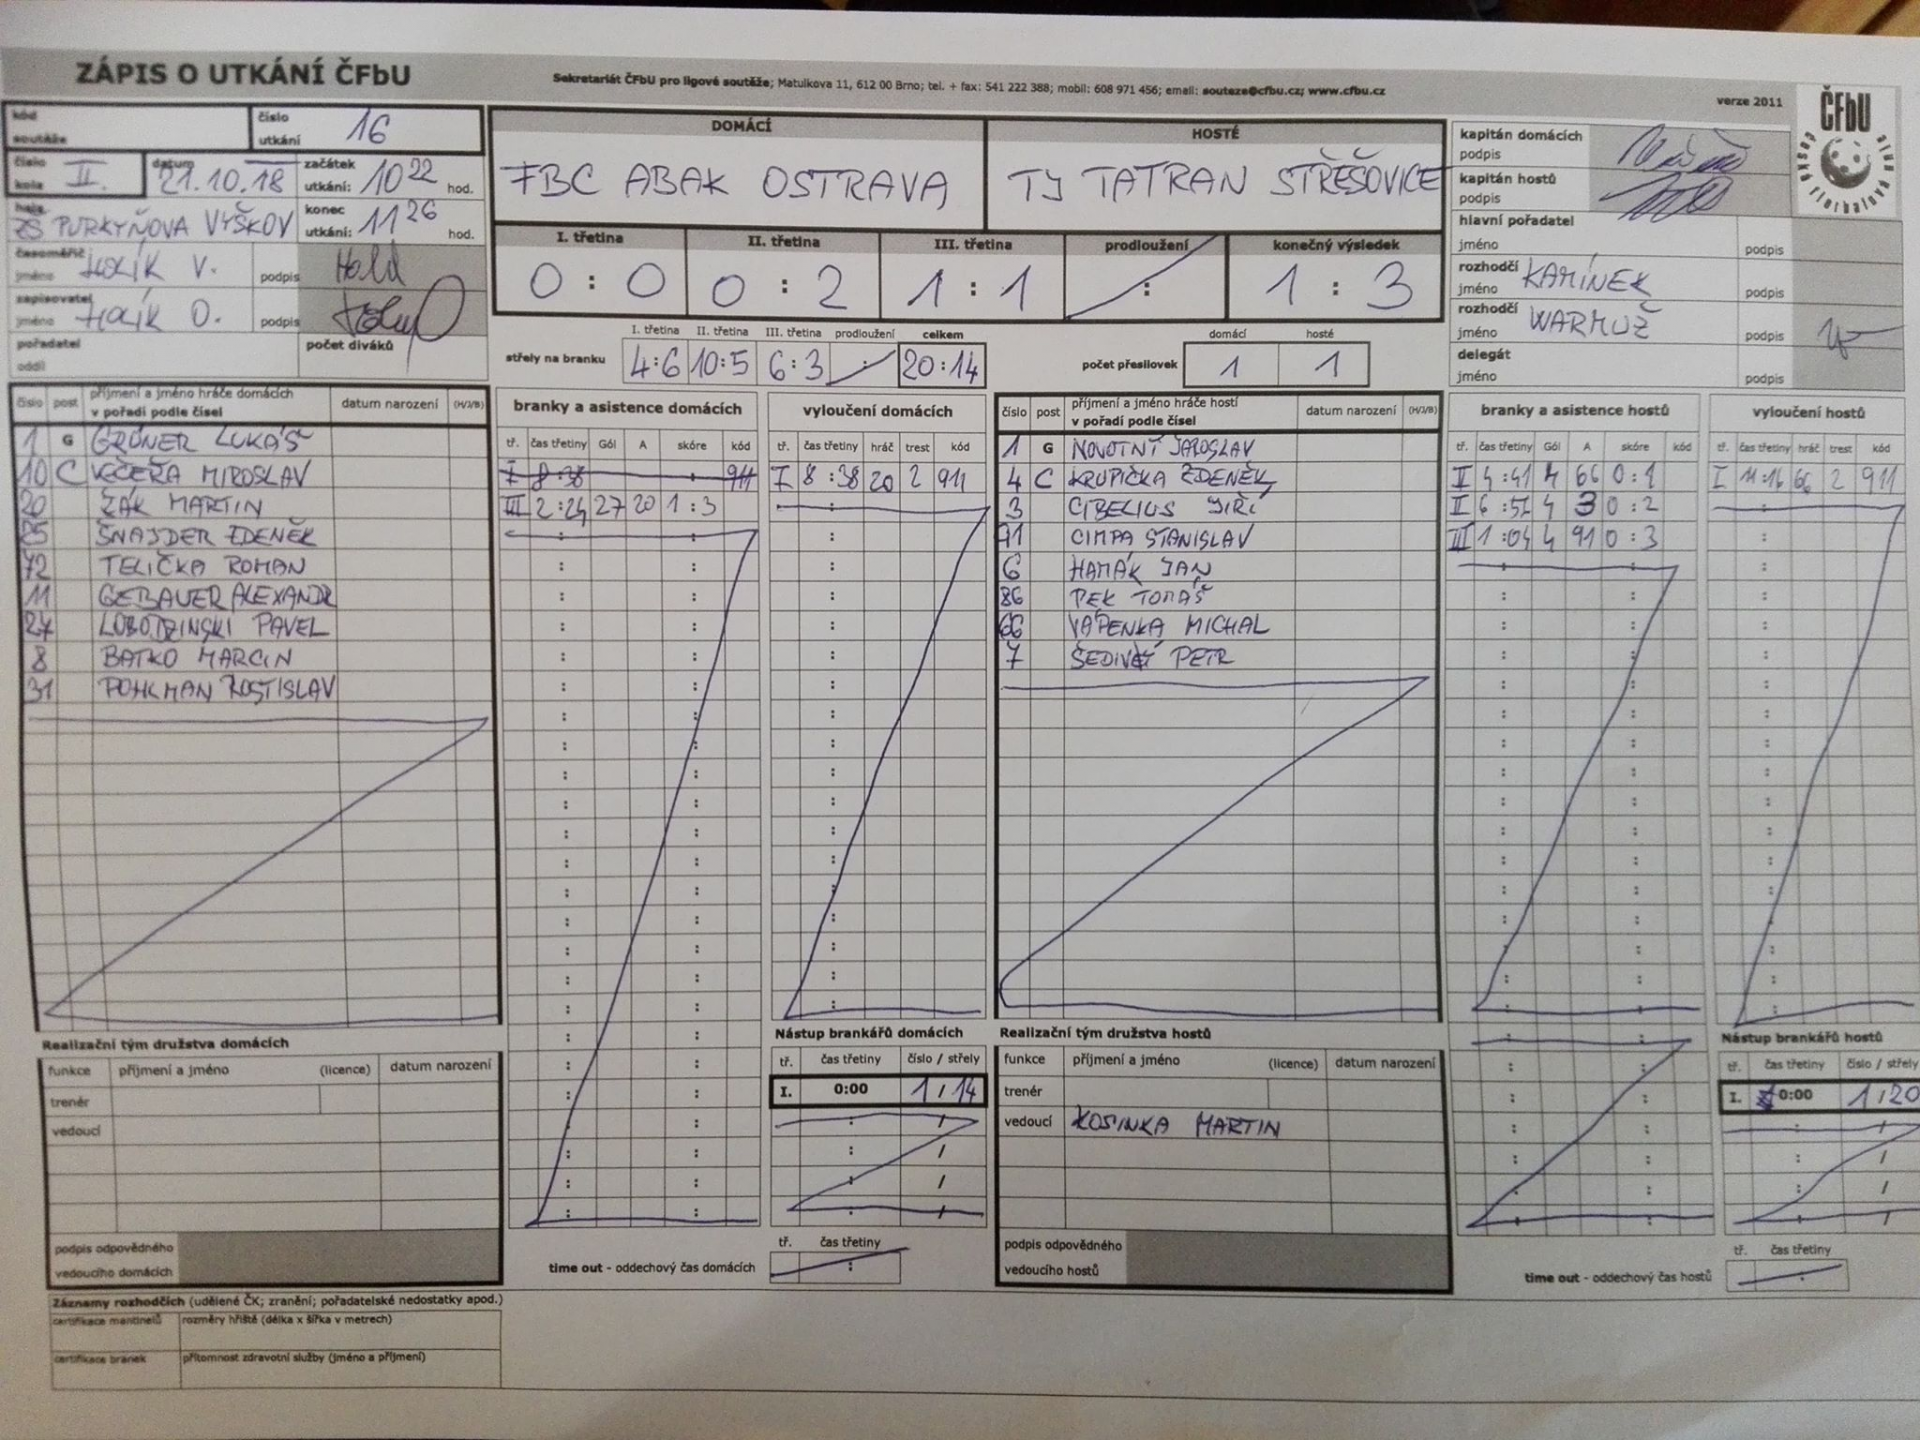 ZÁPIS O UTKÁNÍ ČFbU
Sekretariát ČFbU pro ligové soutěže; Matulkova 11, 612 00 Brno; tel. + fax: 541 222 388; mobil: 608 971 456; email: souteze@cfbu.cz; www.cfbu.cz
verze 2011
ČFbU
kód soutěže
číslo utkání 16
číslo kola II.
datum 21.10.18
začátek utkání: 10 22 hod.
hala ZŠ PURKYŇOVA VYŠKOV
konec utkání: 11 26 hod.
časoměřič jméno HOLÍK V. podpis
zapisovatel jméno HOLÍK O. podpis
pořadatel oddíl
počet diváků
DOMÁCÍ
FBC ABAK OSTRAVA
HOSTÉ
TJ TATRAN STŘEŠOVICE
I. třetina II. třetina III. třetina prodloužení konečný výsledek
0 : 0 0 : 2 1 : 1 : 1 : 3
I. třetina II. třetina III. třetina prodloužení celkem
střely na branku 4:6 10:5 6:3 : 20:14
domácí hosté
počet přesilovek 1 1
kapitán domácích
podpis
kapitán hostů
podpis
hlavní pořadatel
jméno podpis
rozhodčí
jméno KAMÍNEK podpis
rozhodčí
jméno WARMUŽ podpis
delegát
jméno podpis
číslo post příjmení a jméno hráče domácích v pořadí podle čísel datum narození (H/J/B)
1 G GRÜNER LUKÁŠ
10 C VEČEŘA MIROSLAV
20 ŽÁK MARTIN
25 ŠNAJDER ZDENĚK
72 TELIČKA ROMAN
11 GEBAUER ALEXANDR
27 LOBODZINSKI PAVEL
8 BATKO MARCIN
31 POHLMAN ROSTISLAV
branky a asistence domácích
tř. čas třetiny Gól A skóre kód
I 8:38 911
III 2:24 27 20 1:3
vyloučení domácích
tř. čas třetiny hráč trest kód
I 8:38 20 2 911
číslo post příjmení a jméno hráče hostí v pořadí podle čísel datum narození (H/J/B)
1 G NOVOTNÝ JAROSLAV
4 C KRUPIČKA ZDENĚK
3 CIBELIUS JIŘÍ
91 CIMPA STANISLAV
6 HAMÁK JAN
86 PEK TOMÁŠ
66 VÁPENKA MICHAL
7 ŠEDIVÝ PETR
branky a asistence hostů
tř. čas třetiny Gól A skóre kód
II 4:41 4 66 0:1
II 6:51 4 3 0:2
III 1:04 4 91 0:3
vyloučení hostů
tř. čas třetiny hráč trest kód
I 11:16 66 2 911
Realizační tým družstva domácích
funkce příjmení a jméno (licence) datum narození
trenér
vedoucí
podpis odpovědného vedoucího domácích
Nástup brankářů domácích
tř. čas třetiny číslo / střely
I. 0:00 1 / 14
tř. čas třetiny
time out - oddechový čas domácích
Realizační tým družstva hostů
funkce příjmení a jméno (licence) datum narození
trenér
vedoucí KOSINKA MARTIN
podpis odpovědného vedoucího hostů
Nástup brankářů hostů
tř. čas třetiny číslo / střely
I. 0:00 1 / 20
tř. čas třetiny
time out - oddechový čas hostů
Záznamy rozhodčích (udělené ČK; zranění; pořadatelské nedostatky apod.)
certifikace mantinelů rozměry hřiště (délka x šířka v metrech)
certifikace branek přítomnost zdravotní služby (jméno a příjmení)